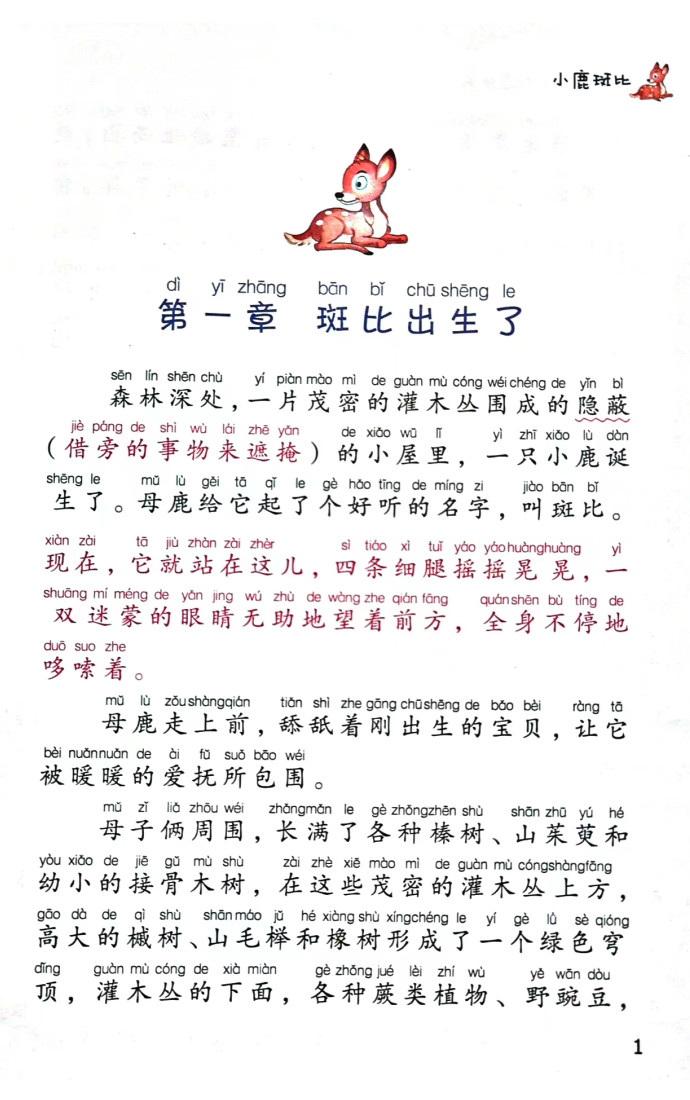 小鹿斑比
dì yī zhāng bān bǐ chū shēng le
第一章 斑比出生了
sēn lín shēn chù yí piàn mào mì de guàn mù cóng wéi chéng de yǐn bì
森林深处，一片茂密的灌木丛围成的隐蔽
jiè páng de shì wù lái zhē yǎn de xiǎo wū lǐ yì zhī xiǎo lù dàn
（借旁的事物来遮掩）的小屋里，一只小鹿诞
shēng le mǔ lù gěi tā qǐ le gè hǎo tīng de míng zi jiào bān bǐ
生了。母鹿给它起了个好听的名字，叫斑比。
xiàn zài tā jiù zhàn zài zhèr sì tiáo xì tuǐ yáo yáo huàng huàng yì
现在，它就站在这儿，四条细腿摇摇晃晃，一
shuāng mí méng de yǎn jing wú zhù de wàng zhe qián fāng quán shēn bù tíng de
双迷蒙的眼睛无助地望着前方，全身不停地
duō suo zhe
哆嗦着。
mǔ lù zǒu shàng qián tiǎn shì zhe gāng chū shēng de bǎo bèi ràng tā
母鹿走上前，舔舐着刚出生的宝贝，让它
bèi nuǎn nuǎn de ài fǔ suǒ bāo wéi
被暖暖的爱抚所包围。
mǔ zǐ liǎ zhōu wéi zhǎng mǎn le gè zhǒng zhēn shù shān zhū yú hé
母子俩周围，长满了各种榛树、山茱萸和
yòu xiǎo de jiē gǔ mù shù zài zhè xiē mào mì de guàn mù cóng shàng fāng
幼小的接骨木树，在这些茂密的灌木丛上方，
gāo dà de qì shù shān máo jǔ hé xiàng shù xíng chéng le yí gè lǜ sè qióng
高大的槭树、山毛榉和橡树形成了一个绿色穹
dǐng guàn mù cóng de xià miàn gè zhǒng jué lèi zhí wù yě wān dòu
顶，灌木丛的下面，各种蕨类植物、野豌豆，
1